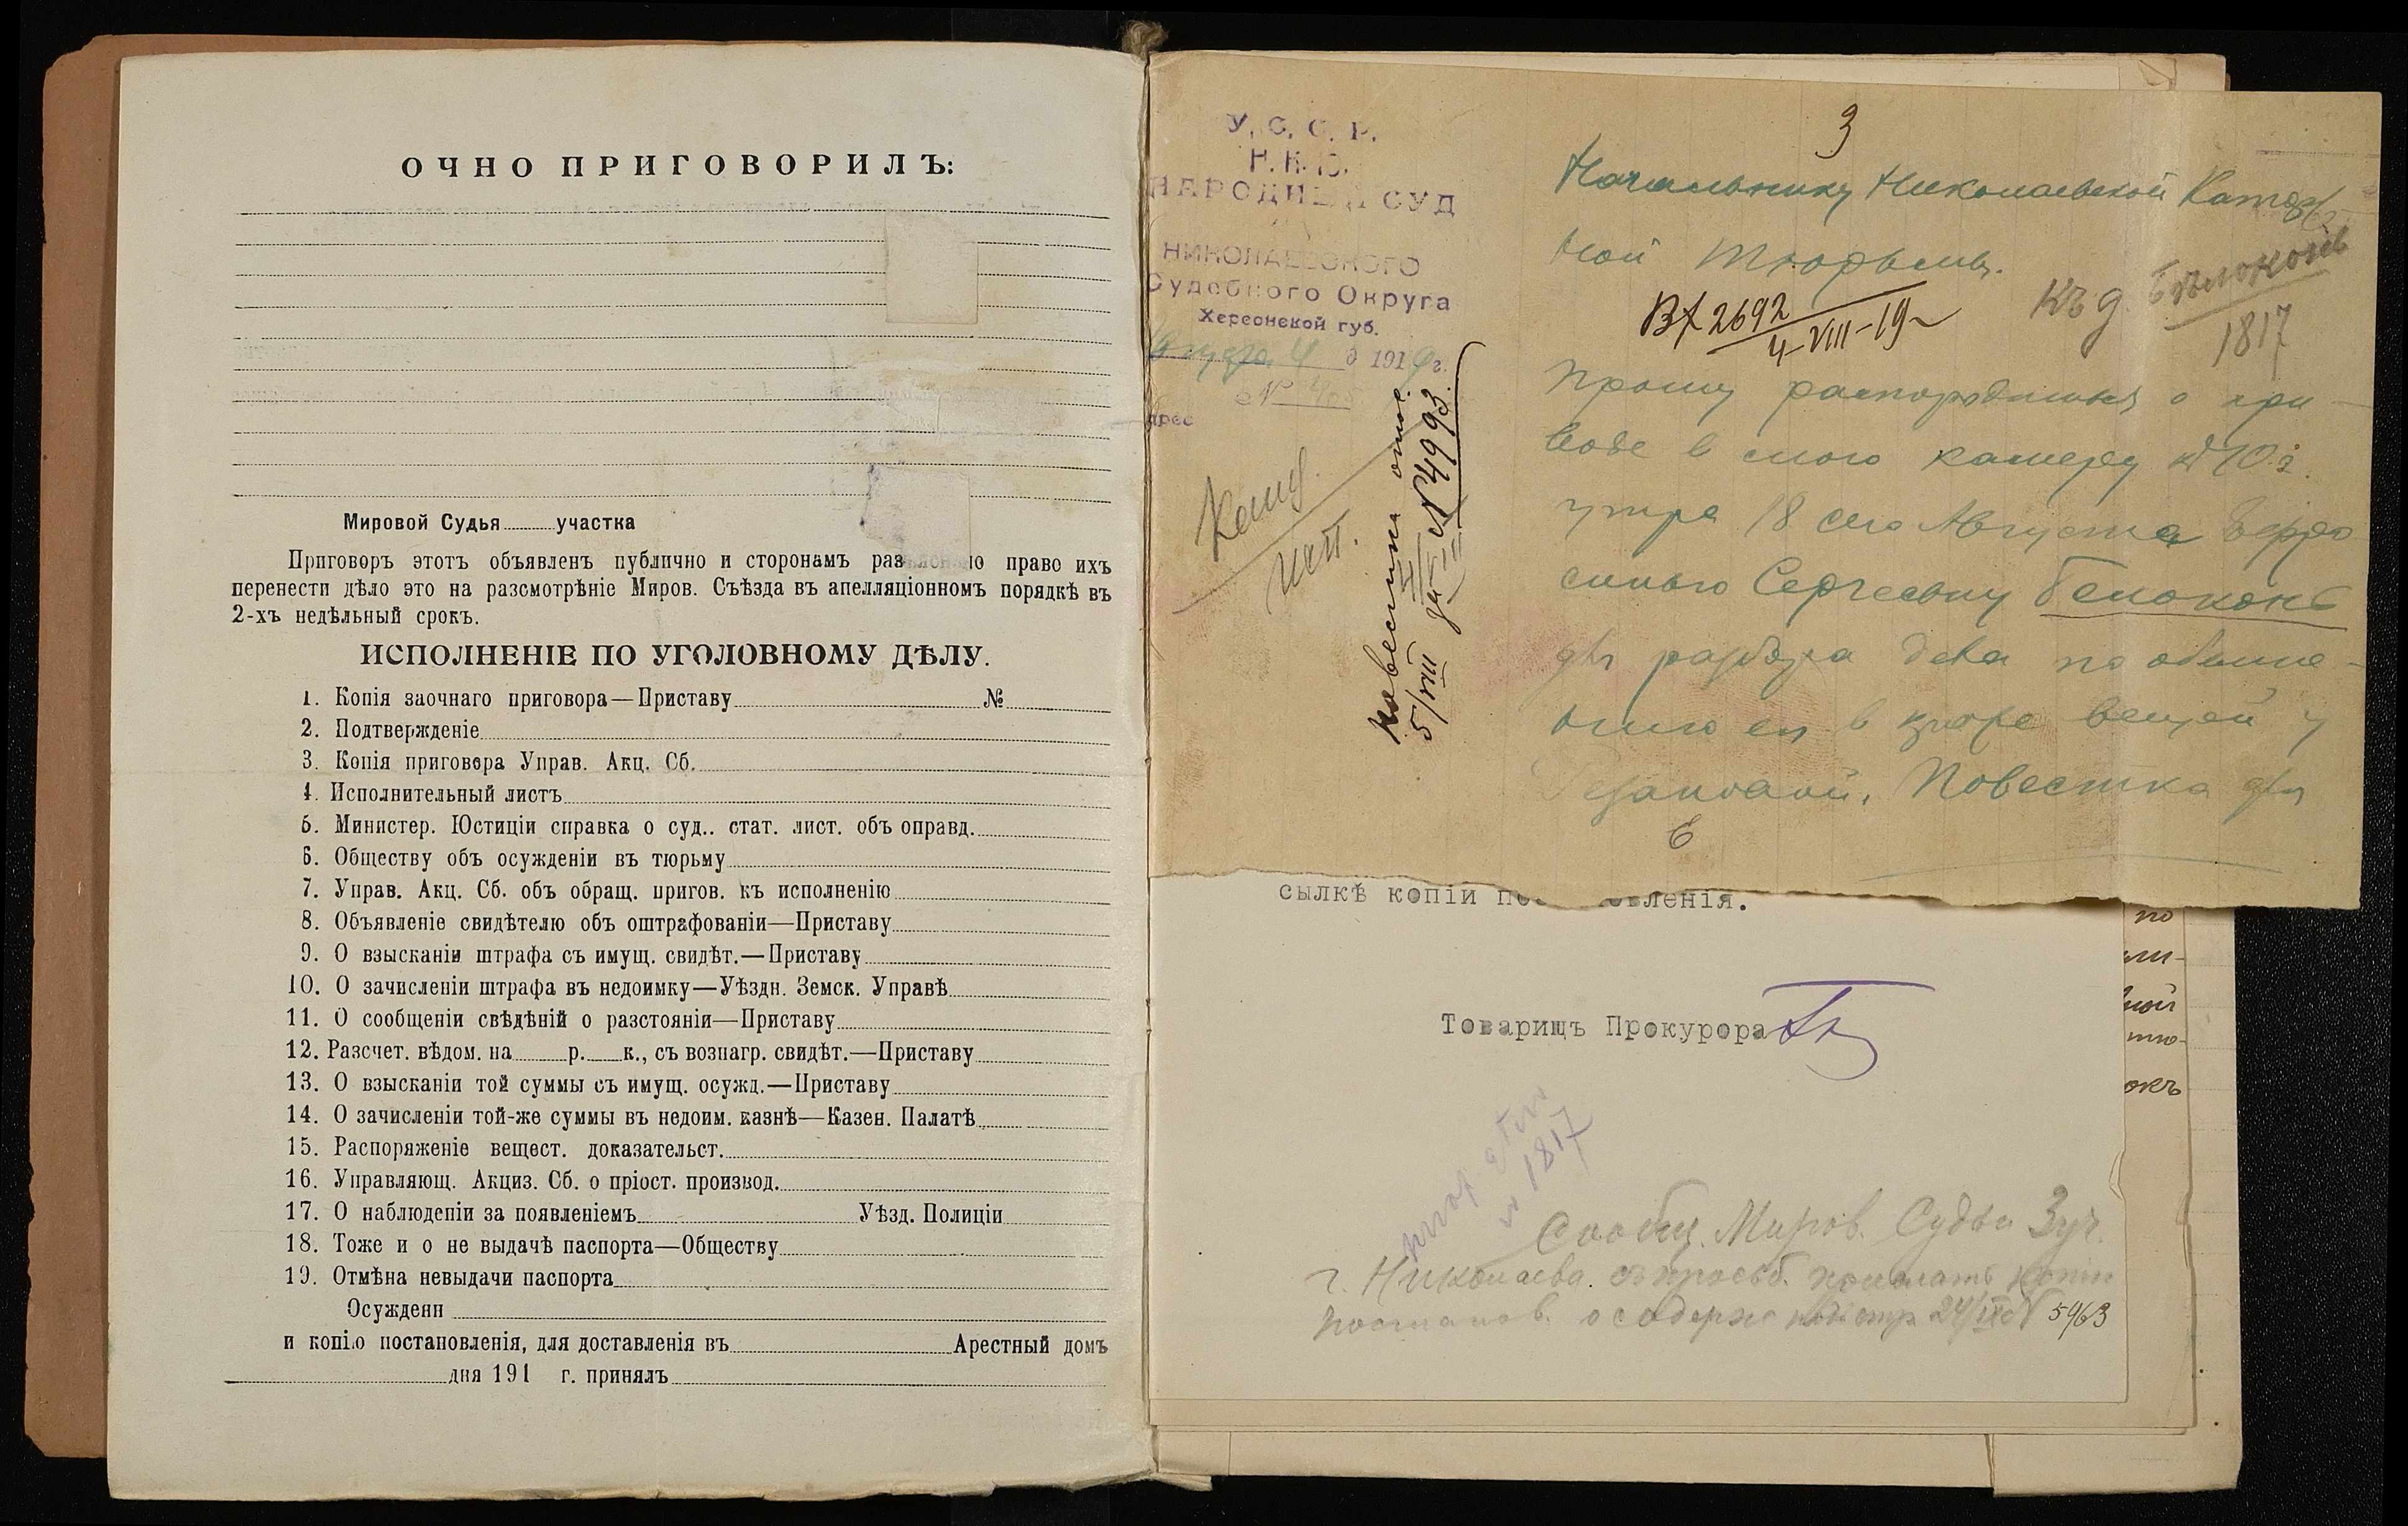 ОЧНО ПРИГОВОРИЛЪ:
Мировой Судья участка
Приговоръ этотъ объявленъ публично и сторонамъ разъяснено право ихъ
перенести дѣло это на разсмотрѣніе Миров. Съѣзда въ апелляціонномъ порядкѣ въ
2-хъ недѣльный срокъ.
ИСПОЛНЕНІЕ ПО УГОЛОВНОМУ ДѢЛУ.
1. Копія заочнаго приговора—Приставу №
2. Подтвержденіе
3. Копія приговора Управ. Акц. Сб.
4. Исполнительный листъ
5. Министер. Юстиціи справка о суд.. стат. лист. объ оправд.
6. Обществу объ осужденіи въ тюрьму
7. Управ. Акц. Сб. объ обращ. пригов. къ исполненію
8. Объявленіе свидѣтелю объ оштрафованіи—Приставу
9. О взысканіи штрафа съ имущ. свидѣт.—Приставу
10. О зачисленіи штрафа въ недоимку—Уѣздн. Земск. Управѣ
11. О сообщеніи свѣдѣній о разстояніи—Приставу
12. Разсчет. вѣдом. на р. к., съ вознагр. свидѣт.—Приставу
13. О взысканіи той суммы съ имущ. осужд.—Приставу
14. О зачисленіи той-же суммы въ недоим. казнѣ—Казен. Палатѣ
15. Распоряженіе вещест. доказательст.
16. Управляющ. Акциз. Сб. о пріост. производ.
17. О наблюденіи за появленіемъ Уѣзд. Полиціи
18. Тоже и о не выдачѣ паспорта—Обществу
19. Отмѣна невыдачи паспорта
Осужденн
и копію постановленія, для доставленія въ Арестный домъ
дня 191 г. принялъ
У. С. С. Р.
Н. К. Ю.
НАРОДНЫЙ СУД
НИКОЛАЕВСКОГО
Судебного Округа
Херсонской губ.
Августа 4 д 1919 г.
№
дрес
повестка
5/VIII №4993.
3
Начальнику Николаевской Каторж
ной Тюрьмы.
Вх 2692
4-VIII-19
Къ д. Бѣлоконевъ
1817
Прошу распорядиться о при-
воде в мою камеру к 10 ч.
утра 18 сего Августа Евфро
синью Сергеевну Белоконь
для разбора дела по обвине-
нию ея в краже вещей у
Повестка для
сылкѣ копіи постановленія.
Товарищъ Прокурора
1817
Сообщ. Миров. Судьи 3 уч.
г. Николаева. съ просьб. копію
постанов. о содерж 24/IX № 5963
по
ли-
ной
окъ